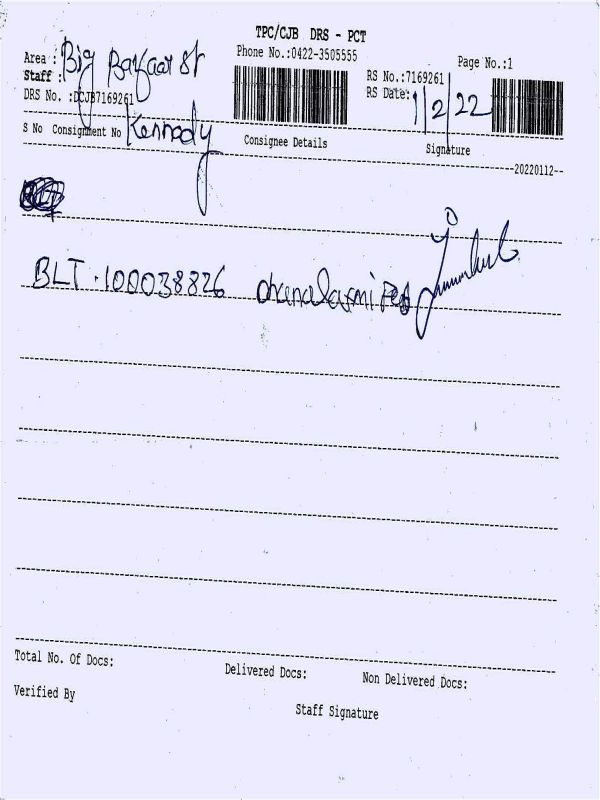 TPC/CJB DRS - PCT
Phone No.:0422-3505555
Page No.:1
Area : Big Bazaar St
Staff : Kennady
DRS No. :DCJB7169261
RS No.:7169261
RS Date: 1/2/22
S No Consignment No Consignee Details Signature
--20220112--
BLT.100038826 dhanalaxmi
Total No. Of Docs: Delivered Docs: Non Delivered Docs:
Verified By
Staff Signature